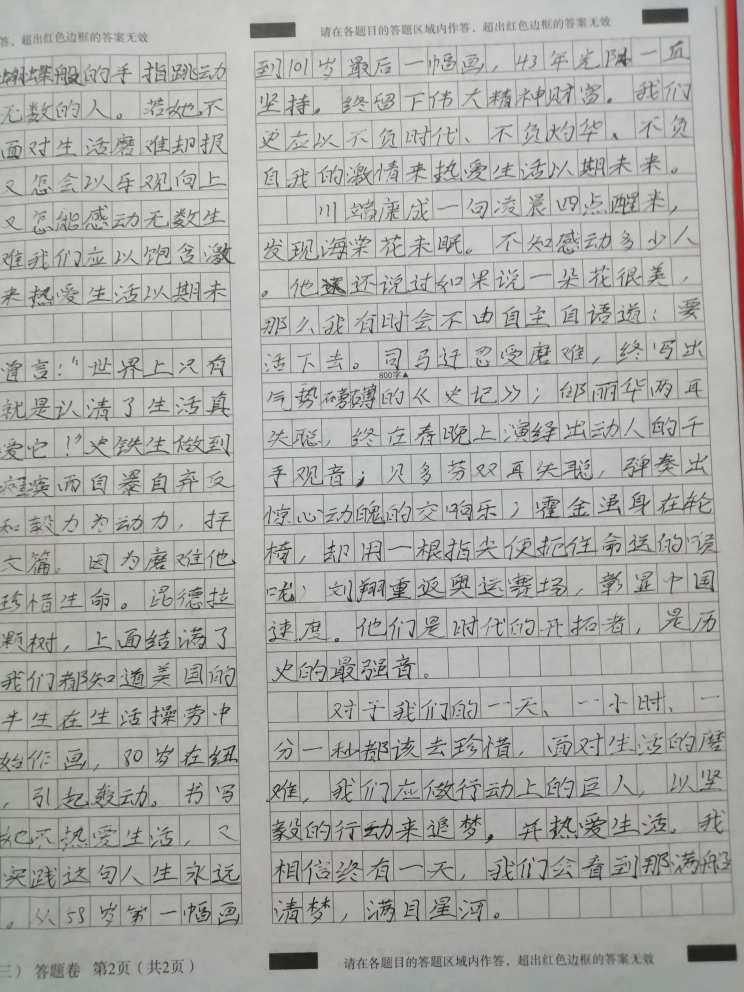 答，超出红色边框的答案无效
蝴蝶般的手指跳动
无数的人。若她不
面对生活磨难却报
又怎会以乐观向上
又怎能感动无数生
难我们应以饱含激
来热爱生活以期未
言："世界上只有
就是认清了生活真
爱它！"史铁生做到
残疾而自暴自弃反
和毅力为动力，抒
文篇。因为磨难他
珍惜生命。昆德拉
颗树，上面结满了
我们都知道美国的
半生在生活操劳中
始作画，80岁在纽
，引起轰动。书写
她不热爱生活，又
实践这句人生永远
。从58岁第一幅画
三） 答题卷 第2页（共2页）
请在各题目的答题区域内作答，超出红色边框的答案无效
到101岁最后一幅画，43年光阴一直
坚持。终留下伟大精神财富。我们
更应以不负时代、不负灼华、不负
自我的激情来热爱生活以期未来。
川端康成一句凌晨四点醒来，
发现海棠花未眠。不知感动多少人
。他还说过如果说一朵花很美，
那么我有时会不由自主自语道：要
活下去。司马迁忍受磨难，终写出
800字▲
气势磅礴的《史记》；邰丽华两耳
失聪，终在春晚上演绎出动人的千
手观音；贝多芬双耳失聪，弹奏出
惊心动魄的交响乐；霍金虽身在轮
椅，却用一根指尖便扼住命运的咽
喉；刘翔重返奥运赛场，彰显中国
速度。他们是时代的开拓者，是历
史的最强音。
对于我们的一天、一小时、一
分一秒都该去珍惜，面对生活的磨
难，我们应做行动上的巨人，以坚
毅的行动来追梦，并热爱生活。我
相信终有一天，我们会看到那满船
清梦，满目星河。
请在各题目的答题区域内作答，超出红色边框的答案无效